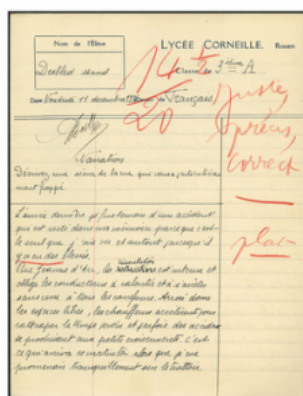 Nom de l'Élève
LYCÉE CORNEILLE. Rouen
14
20
Classe de 3ième A
Date Vendredi 11 decembre
Français
Juste,
précis,
correct
plat
Narration
Décrivez une scène de la rue qui vous a
frappé
L'année dernière je fus témoin d'un accident
qui est resté dans ma mémoire parce que c'est
le seul que j'ai vu et surtout parce qu'il
y a eu des blessés.
Rue Jeanne d'Arc, la circulation est intense et
oblige les conducteurs à ralentir et à s'arrêter
sans cesse à tous les carrefours. Aussi dans
les espaces libres, les chauffeurs accélèrent pour
rattraper le temps perdu et parfois des
se produisent aux petits croisements. C'est
ce qui arriva alors que je me
promenais tranquillement sur le trottoir.